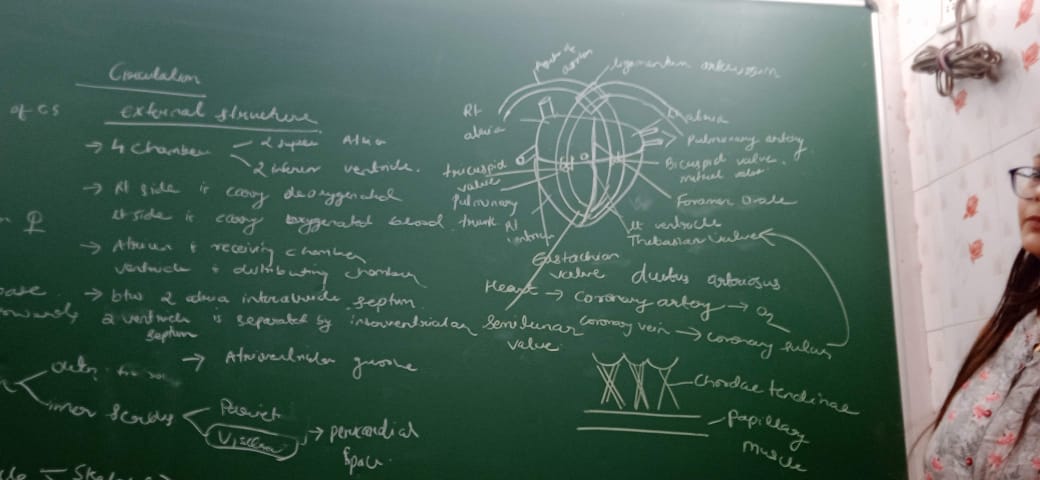 Circulation
of CS
External structure
→ 4 Chamber
2 Atria
2 inferior ventricle.
→ Rt side is carry deoxygenated
Lt side is carry oxygenated blood.
→ Atrium → receiving chamber
ventricle → distributing chamber
→ btw 2 atria septum
2 ventricle is separated by interventricular
septum
→ Atrioventricular groove
inner serous
Pariet
Visceral → pericardial
space.
Arch of aorta
ligamentum arteriosum
Rt
atria
Lt atria
Pulmonary artery
tricuspid
valve
Bicuspid valve.
Pulmonary
trunk
Foramen Ovale
Rt
ventricle
Lt ventricle
Thebasian Valve
Eustachian
valve
ductus arteriosus
Heart → Coronary artery → O2
Coronary vein → Coronary sinus
Semilunar
valve
Chordae tendinae
Papillary
muscle